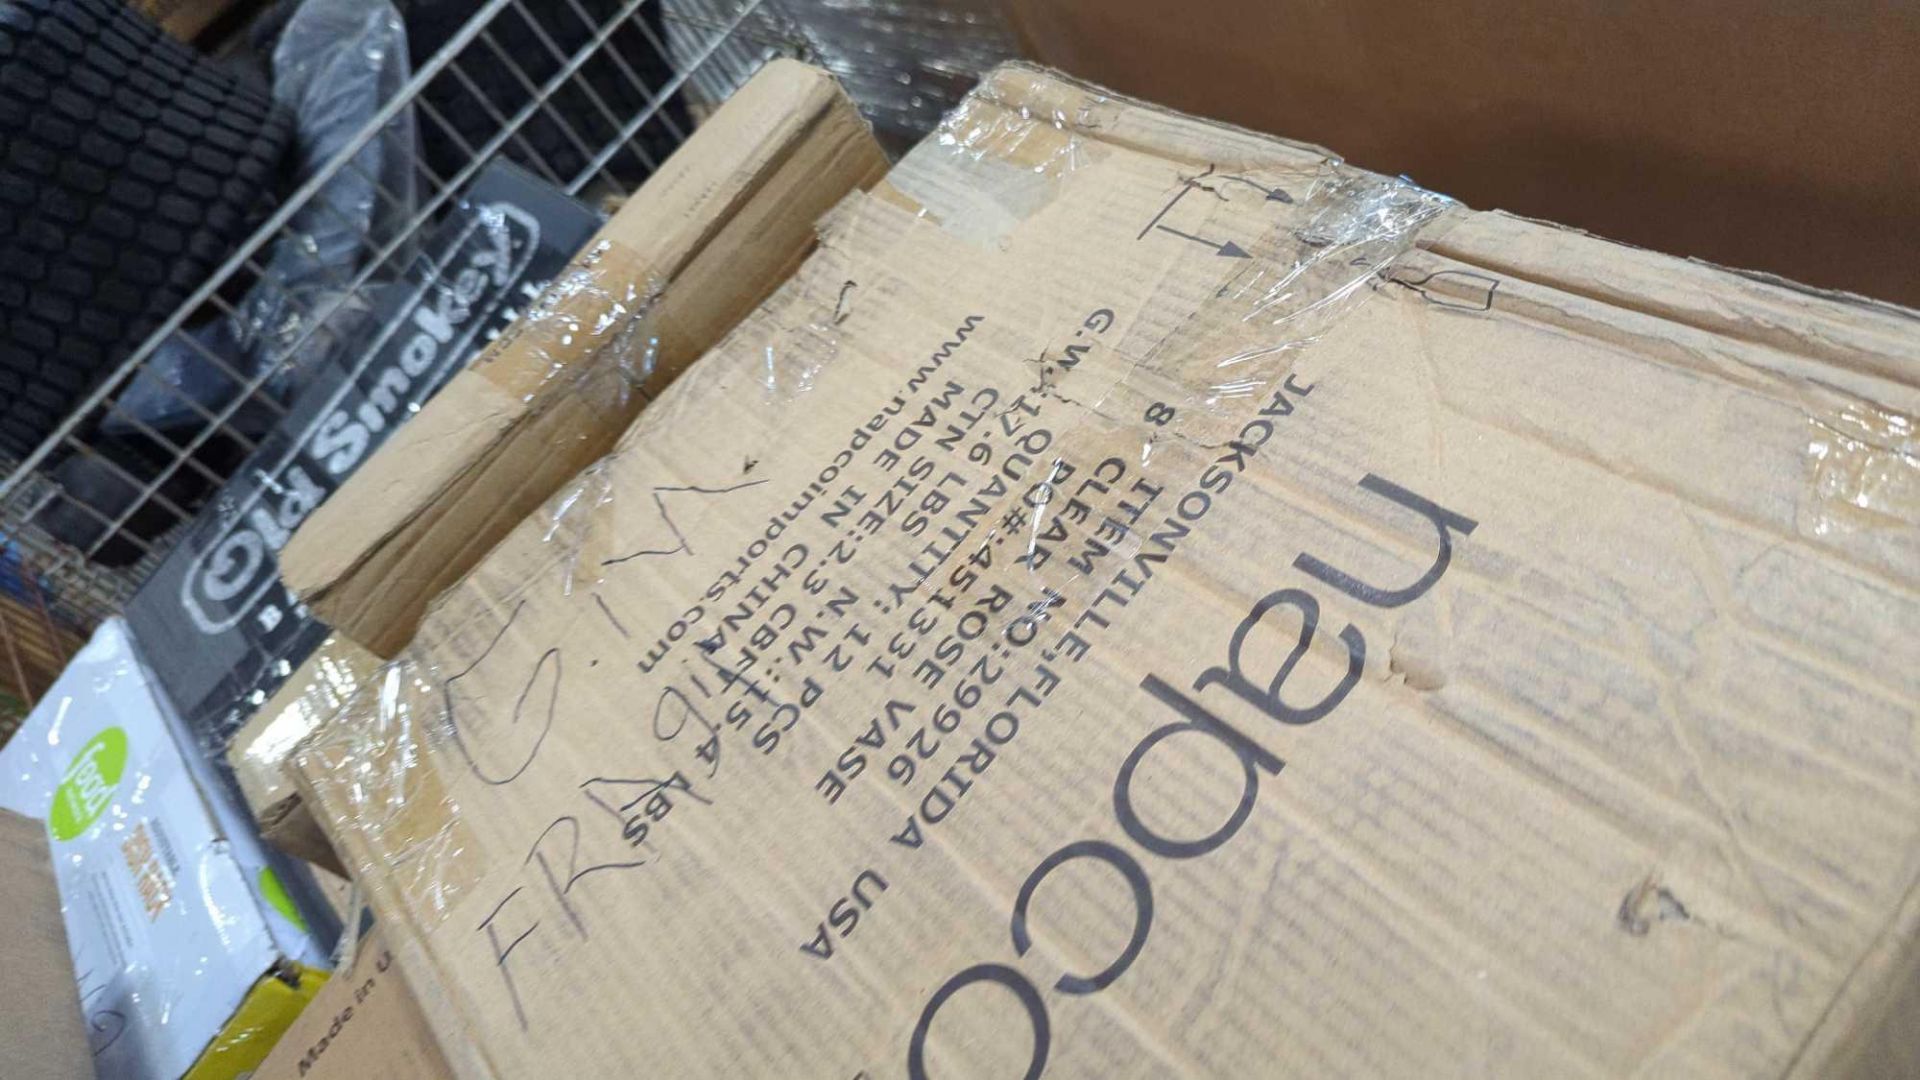 napco
JACKSONVILLE,FLORIDA USA
ITEM NO:29926
8" CLEAR ROSE VASE
PO#:451331
QUANTITY: 12 PCS
G.W.:17.6 LBS N.W.:15.4 LBS
CTN SIZE:2.3 CBFT
MADE IN CHINA
www.napcoimports.com
G.I.
FRAgil
Smoke
BIG
food
Made in